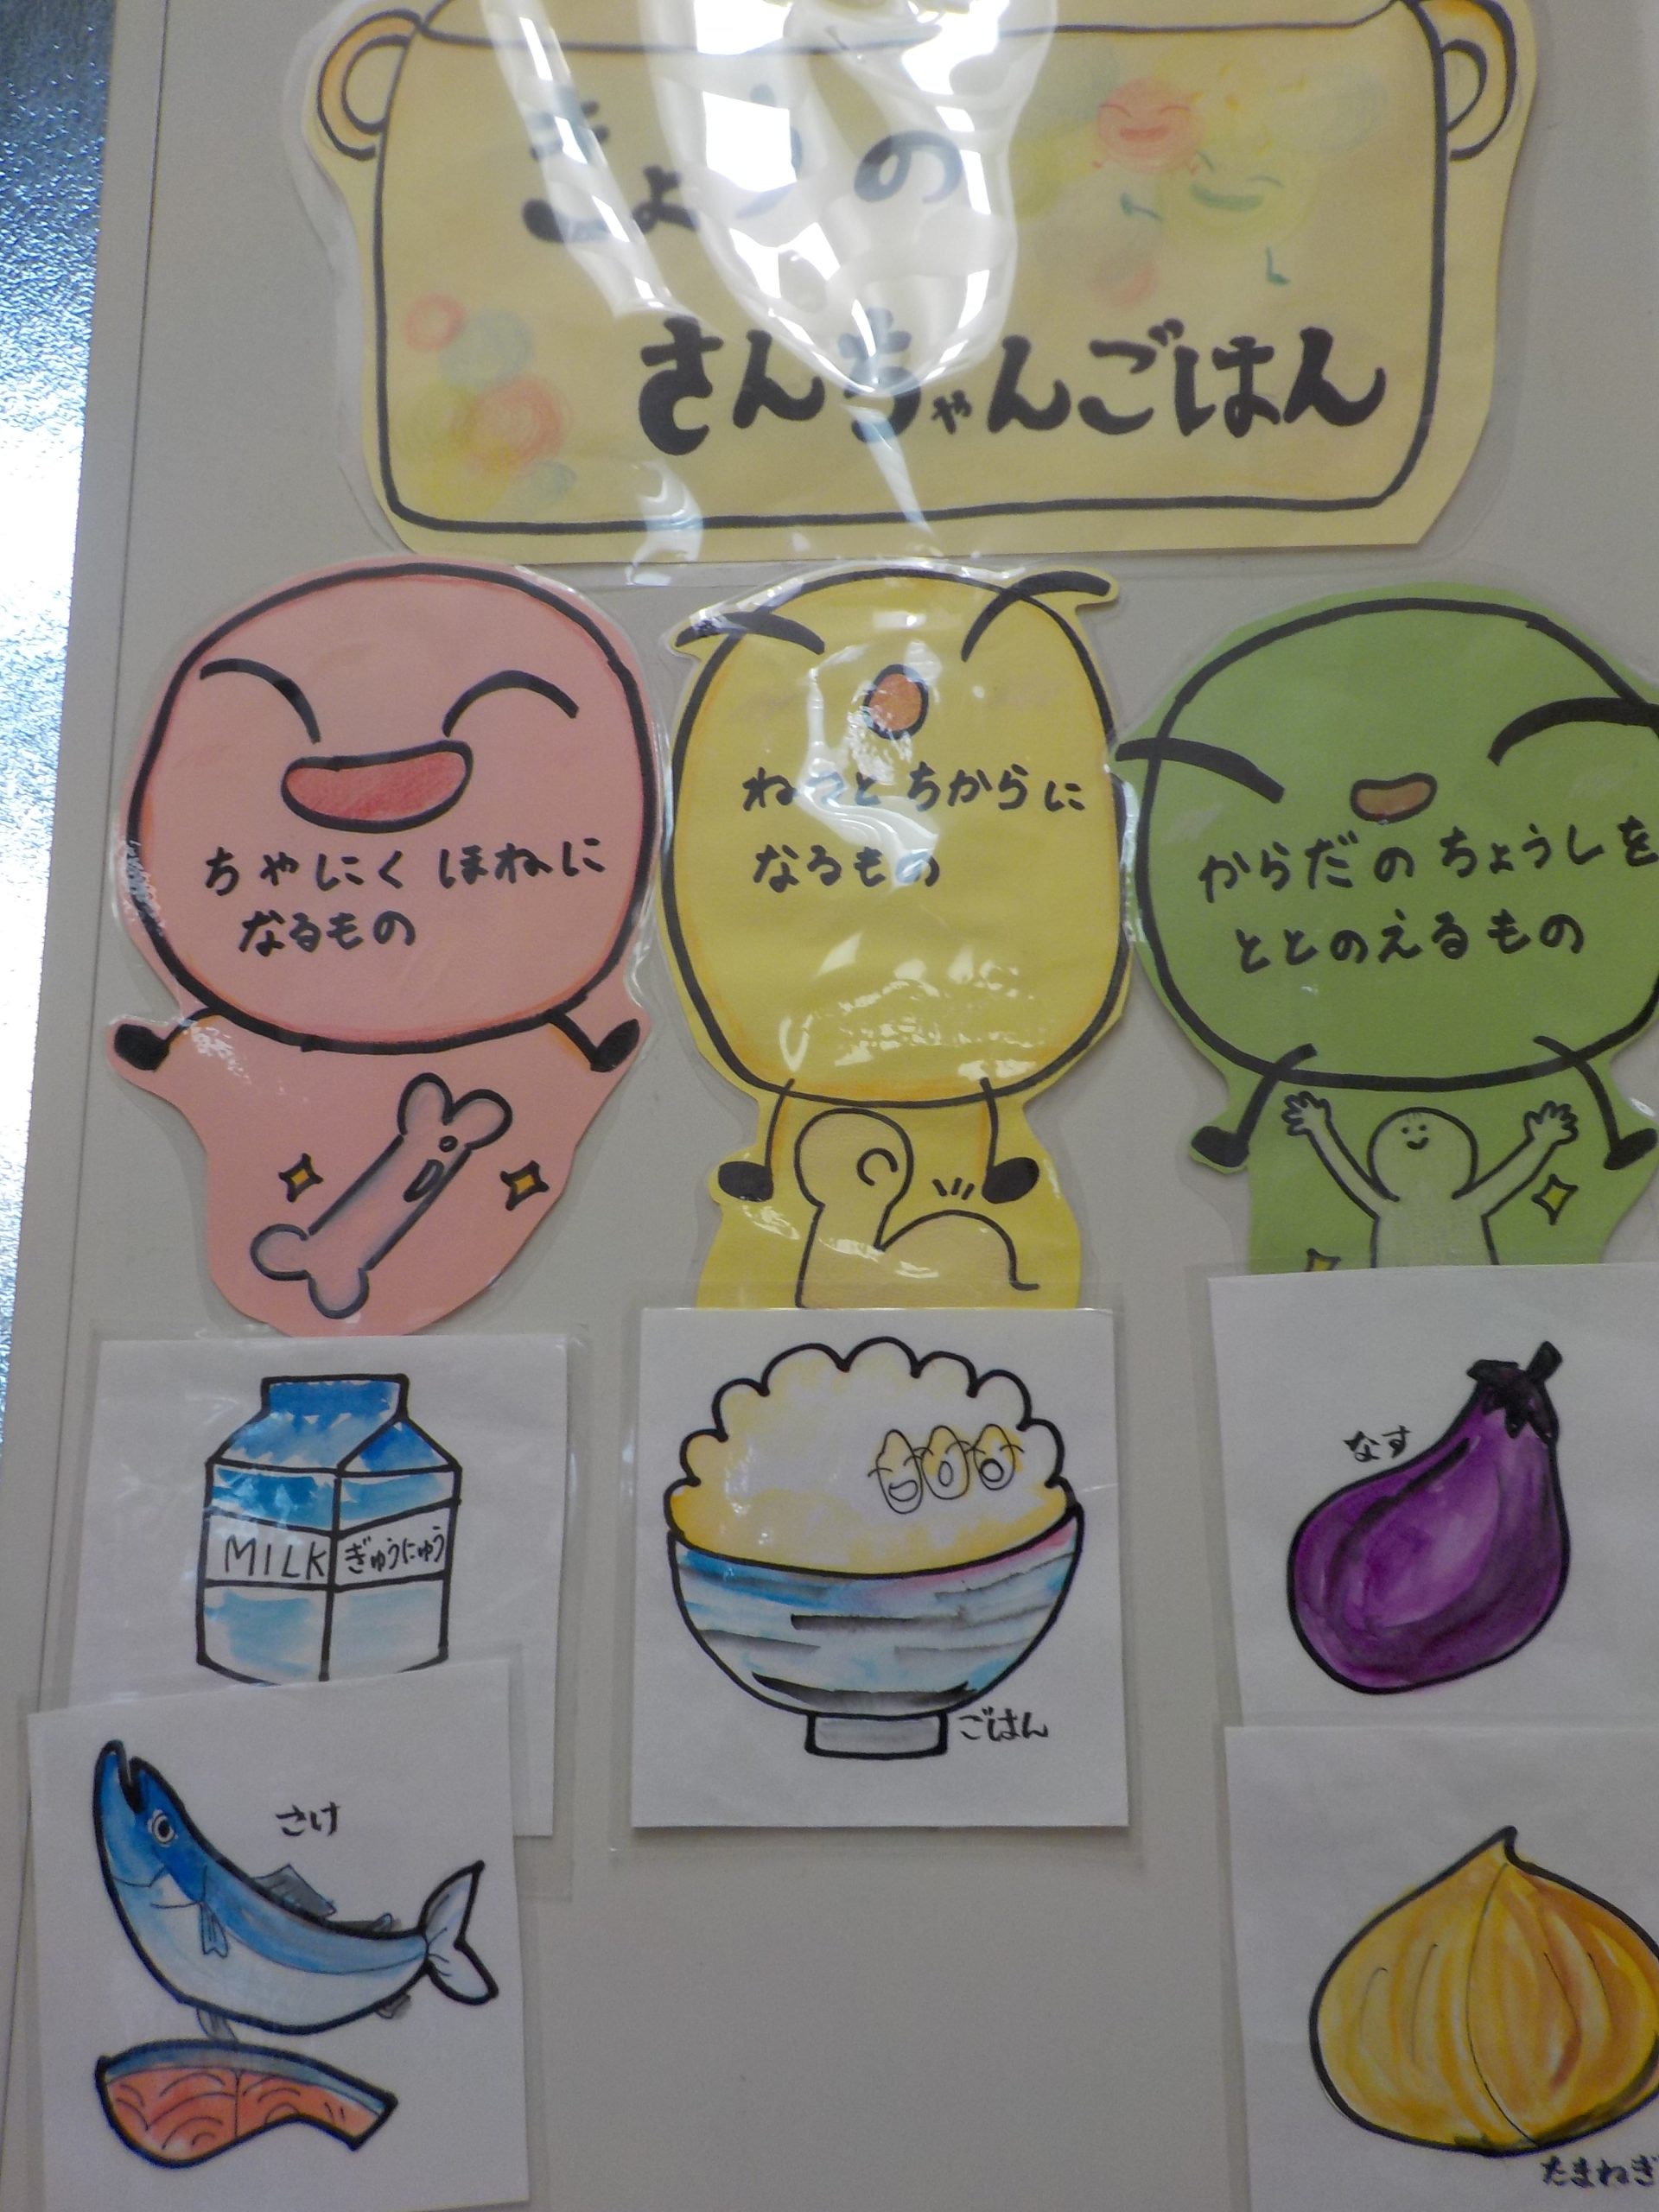 きょうの
さんちゃんごはん
ちやにくほねに
なるもの
ねつとちからに
なるもの
からだのちょうしを
ととのえるもの
MILK
ぎゅうにゅう
ごはん
なす
さけ
たまねぎ